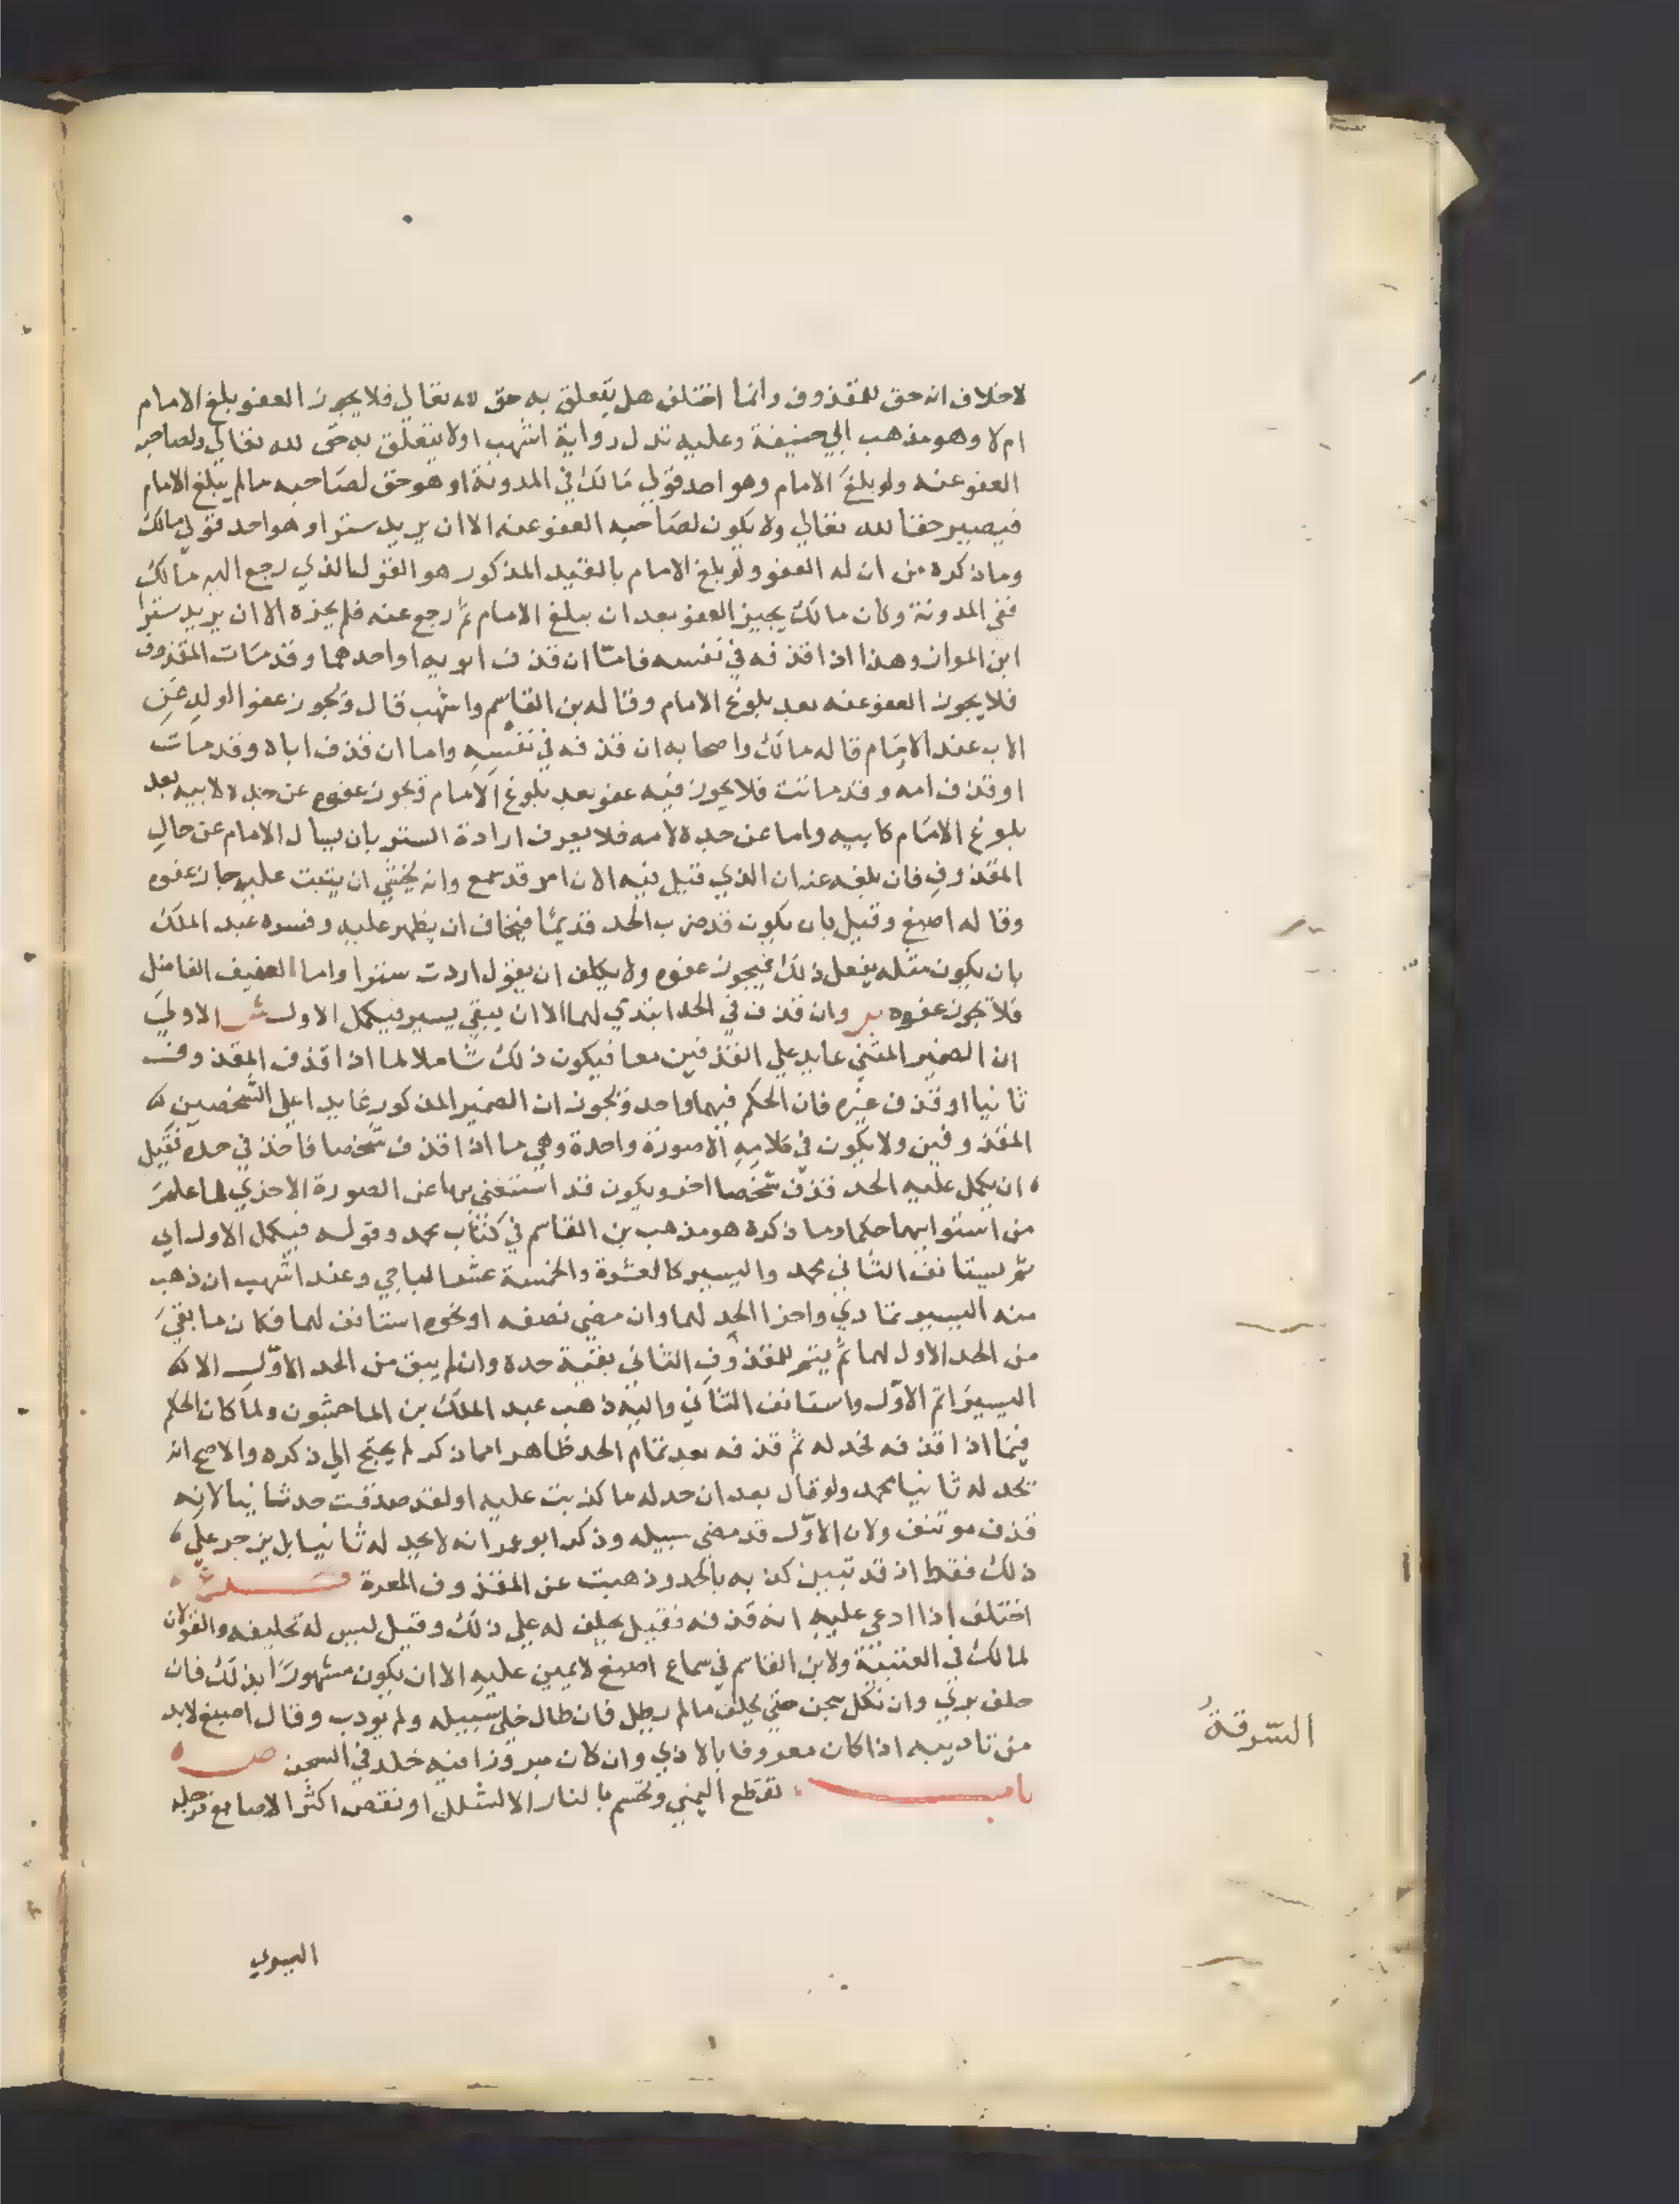 لاخلاف انه حق للمقذوف وانما اختلف هل يتعلق به حق لله تعالي فلا يجوز العفو بلغ الامام
ام لا وهو مذهب ابي حنيفة وعليه تدل رواية اشهب اولا يتعلق به حق لله تعالي ولصاحبه
العفو عنه ولو بلغ الامام وهو احد قولي مالك في المدونة او هو حق لصاحبه ما لم يبلغ الامام
فيصير حقا لله تعالي ولا يكون لصاحبه العفو عنه الا ان يريد سترا وهو احد قولي مالك
وما ذكره من ان له العفو ولو بلغ الامام بالقيد المذكور هو القول الذي رجع اليه مالك
ففي المدونة وكان مالك يجيز العفو بعد ان يبلغ الامام ثم رجع عنه فلم يجزه الا ان يريد سترا
ابن المواز وهذا اذا قذفه في نفسه فاما ان قذف ابويه او احدهما وقد مات المقذوف
فلا يجوز العفو عنه بعد بلوغ الامام وقاله بن القاسم واشهب قال ويجوز عفو الولد عن
الاب عند الامام قاله مالك واصحابه ان قذفه في نفسه واما ان قذف اباه وقد مات
او قذف امه وقد ماتت فلا يجوز فيه عفو بعد بلوغ الامام ويجوز عفوه عن جده لابيه بعد
بلوغ الامام كابيه واما عن جده لامه فلا يعرف ارادة الستر بان يسال الامام عن حال
المقذوف فان بلغه عنه ان الذي قيل فيه الان امر قد سمع وانه يخشي ان يثبت عليه جاز عفوه
وقاله اصبغ وقيل بان يكون قد ضرب الحد قديما فيخاف ان يظهر عليه وفسره عبد الملك
بان يكون مثله يفعل ذلك فيجوز عفوه ولا يكلف ان يقول اردت سترا واما العفيف الفاضل
فلا يجوز عفوه وان قذف في الحد ابتدي لهما الا ان يبقي يسير فيكمل الاول ش الاولي
ان الضمير المثني عايد علي القذفين معا فيكون ذلك شاملا لما اذا قذف المقذوف
ثانيا او قذف غيره فان الحكم فيهما واحد ويجوز ان الضمير المذكور عايد اعلي الشخصين
المقذوفين ولا يكون في كلامه الا صورة واحدة وهي ما اذا قذف شخصا فاخذ في حده فقبل
ان يكمل عليه الحد قذف شخصا اخر ويكون قد استغني بها عن الصورة الاخري لما علمر
من استوايهما حكما وما ذكره هو مذهب بن القاسم في كتاب محمد وقوله فيكمل الاول اي
ثم يستانف الثاني محمد واليسير كالعشرة والخمسة عشر الباجي وعند اشهب ان ذهب
منه اليسير تمادي واجزا الحد لهما وان مضي نصفه او نحوه استانف لهما فكان ما بقي
من الحد الاول لهما ثم يتم للمقذوف الثاني بقية حده وان لم يبق من الحد الاول الا
اليسير اتم الاول واستانف الثاني واليه ذهب عبد الملك بن الماجشون ولما كان الحكم
فيما اذا قذفه فحد له ثم قذفه بعد تمام الحد ظاهرا مما ذكر لم يحتج الي ذكره والاصح انه
يحد له ثانيا محمد ولو قال بعد ان حد له ما كذبت عليه او لقد صدقت حد ثانيا لانه
قذف موتنف ولان الاول قد مضي سبيله وذكر ابو عمر انه لا يحد له ثانيا بل يزجر علي
ذلك فقط اذ قد تبين كذبه بالحد وذهبت عن المقذوف المعرة
اختلف اذا ادعي عليه انه قذفه فقيل يحلف له علي ذلك وقيل ليس له تحليفه والقولان
لمالك في العتبية ولابن القاسم في سماع اصبغ لا يمين عليه الا ان يكون مشهورا بذلك فان
حلف بري وان نكل سجن حتي يحلف ما لم يطل فان طال خلي سبيله ولم يودب وقال اصبغ لابد
من تاديبه اذا كان معروفا بالاذي وان كان مبرزا فيه خلد في السجن ص
باب تقطع اليمني وتحسم بالنار الا لشلل او نقص اكثر الاصابع فرجله
اليسري
السرقة